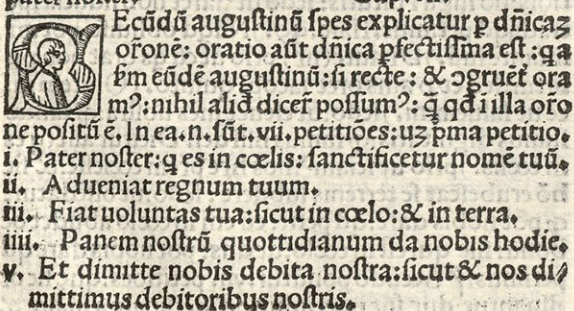 SEcūdū augustinū spes explicatur p dñicaꝫ
orōnē: oratio aūt dñica pfectissima est: qa
ẜm eūdē augustinū: si recte: & ↄgruēt᷑ ora
mꝰ: nihil aliđ dicer̄ possumꝰ: q̄ qđ i illa orō
ne positū ē. In ea.n.sūt.vii.petitiões: uꝫ pma petitio.
i. Pater noster: q es in cœlis: sanctificetur nomē tuū.
ii. Adueniat regnum tuum.
iii. Fiat uoluntas tua: sicut in cœlo: & in terra.
iiii. Panem nostrū quottidianum da nobis hodie.
v. Et dimitte nobis debita nostra: sicut & nos di/
mittimus debitoribus nostris.